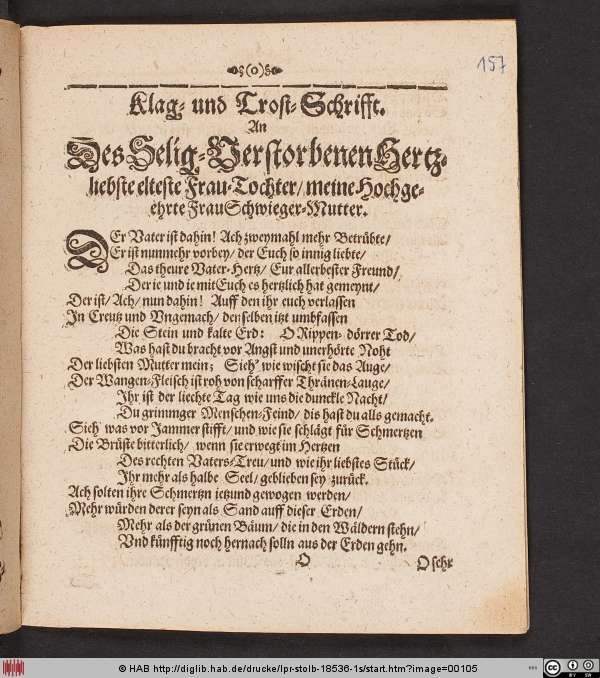 157
(o)
Klag- und Trost-Schrifft.
An
Des Selig-Verstorbenen Hertz-
liebste elteste Frau-Tochter/ meine Hochge-
ehrte Frau Schwieger-Mutter.
DEr Vater ist dahin! Ach zweymahl mehr Betrübte/
Er ist nunmehr vorbey/ der Euch so innig liebte/
Das theure Vater-Hertz/ Eur allerbester Freund/
Der ie und ie mit Euch es hertzlich hat gemeynt/
Der ist/ Ach/ nun dahin! Auff den ihr euch verlassen
In Creutz und Vngemach/ denselben itzt umbfassen
Die Stein und kalte Erd: O Rippen-dörrer Tod/
Was hast du bracht vor Angst und unerhörte Noht
Der liebsten Mutter mein; Sieh' wie wischt sie das Auge/
Der Wangen-Fleisch ist roh von scharffer Thränen-Lauge/
Ihr ist der liechte Tag wie uns die dunckle Nacht/
Du grimmger Menschen-Feind/ dis hast du alls gemacht.
Sieh' was vor Jammer stifft/ und wie sie schlägt für Schmertzen
Die Brüste bitterlich/ wenn sie erwegt im Hertzen
Des rechten Vaters-Treu/ und wie ihr liebstes Stück/
Ihr mehr als halbe Seel/ geblieben sey zurück.
Ach solten ihre Schmertzn ietzund gewogen werden/
Mehr würden derer seyn als Sand auff dieser Erden/
Mehr als der grünen Bäum/ die in den Wäldern stehn/
Vnd künfftig noch hernach solln aus der Erden gehn.
O
O sehr
© HAB http://diglib.hab.de/drucke/lpr-stolb-18536-1s/start.htm?image=00105
BY SA